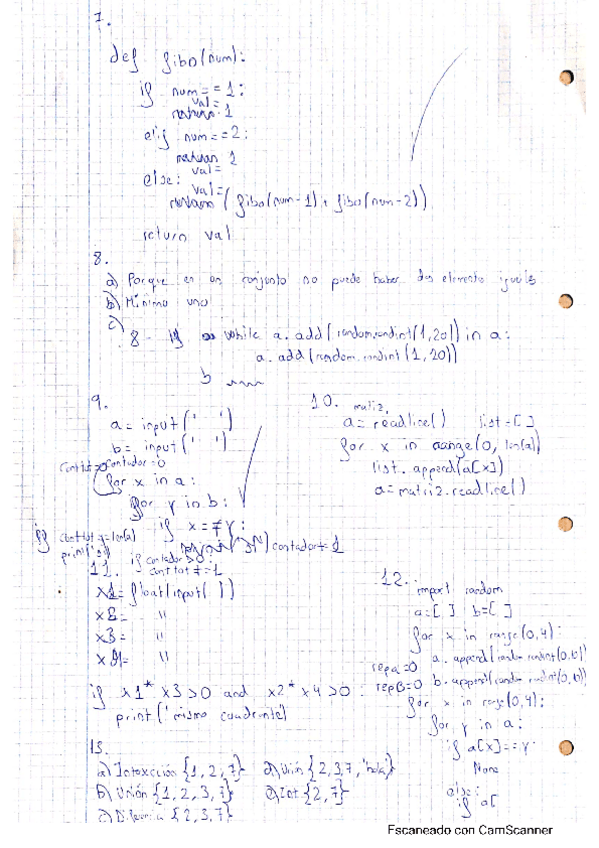 7.
def fibo(num):
if num == 1:
val =
return 1
elif num == 2:
val =
return 1
else:
val =
return (fibo(num-1) + fibo(num-2))
return val
8.
a) Porque en un conjunto no puede haber dos elemento iguals
b) Mínimo uno
c)
8- while a.add(random.randint(1,20)) in a:
a.add(random.randint(1,20))
b
9.
a = input(' ')
b = input(' ')
contador = 0
for x in a:
for y in b:
if x == y:
contador += 1
if contador > 0:
conttot += 1
if conttot == len(a)
print('si')
10.
matriz.
a = readline() list = [ ]
for x in range(0, len(a))
list.append(a[x])
a = matriz.readline()
11.
x1 = float(input( ))
x2 = "
x3 = "
x4 = "
if x1 * x3 > 0 and x2 * x4 > 0:
print('mismo cuadrante')
12.
import random
a = [ ] b = [ ]
for x in range(0,4):
a.append(random.randint(0,6))
b.append(random.randint(0,6))
repa = 0
repB = 0
for x in range(0,4):
for y in a:
if a[x] == y
None
else:
if a[
13.
a) Intersección {1, 2, 7} d) Unión {2, 3, 7, 'hola'}
b) Unión {1, 2, 3, 7} e) Int {2, 7}
c) Diferencia {2, 3, 7}
Escaneado con CamScanner